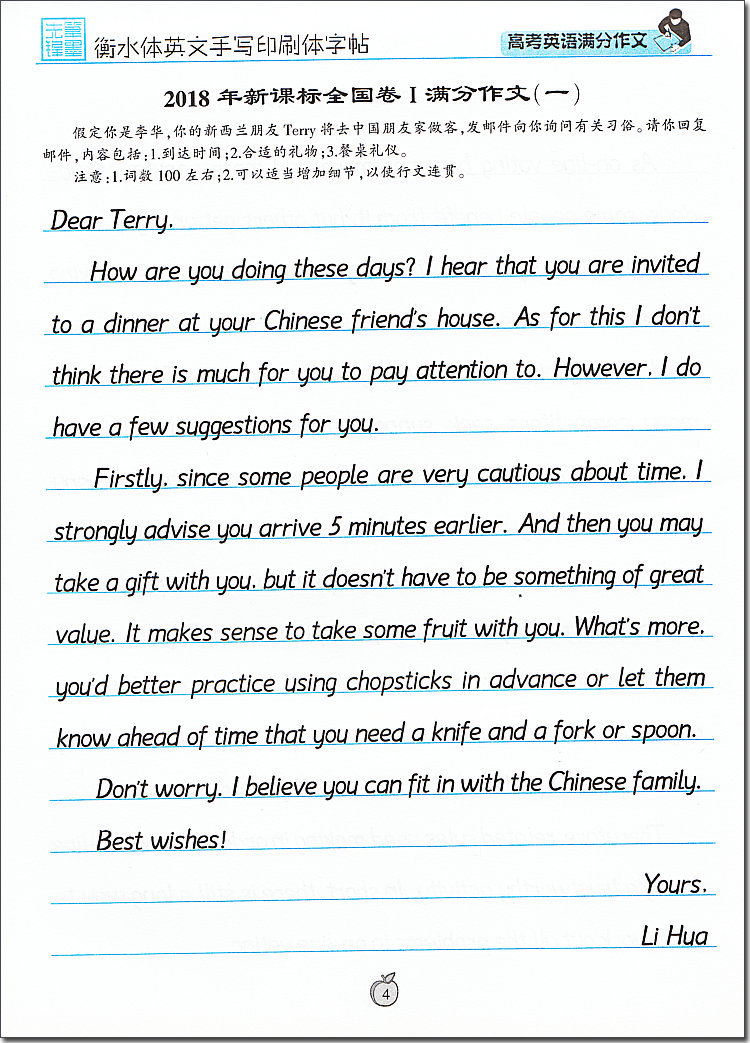 笔墨先锋
衡水体英文手写印刷体字帖
高考英语满分作文
2018 年新课标全国卷 I 满分作文(一)
假定你是李华,你的新西兰朋友 Terry 将去中国朋友家做客,发邮件向你询问有关习俗。请你回复
邮件,内容包括:1.到达时间;2.合适的礼物;3.餐桌礼仪。
注意:1.词数 100 左右;2.可以适当增加细节,以使行文连贯。
Dear Terry,
How are you doing these days? I hear that you are invited
to a dinner at your Chinese friend's house. As for this I don't
think there is much for you to pay attention to. However, I do
have a few suggestions for you.
Firstly, since some people are very cautious about time, I
strongly advise you arrive 5 minutes earlier. And then you may
take a gift with you, but it doesn't have to be something of great
value. It makes sense to take some fruit with you. What's more,
you'd better practice using chopsticks in advance or let them
know ahead of time that you need a knife and a fork or spoon.
Don't worry. I believe you can fit in with the Chinese family.
Best wishes!
Yours,
Li Hua
4